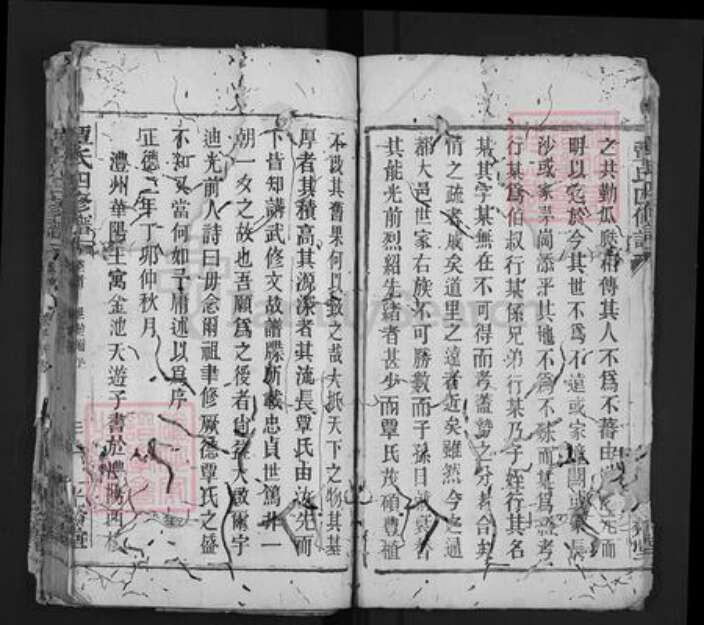 覃氏四修譜
之共勤瓜瓞相傳其人不為不蕃由 先而
明以迄於今其世不為不遠或家 關或家長
沙或家 崗添平其地不為不殊而某為 考
行某為伯叔行某係兄弟行某乃子姪行其名
某其字某無在不可得而考蓋勢之分者合
情之疏者戚矣道里之遠者近矣雖然今之通
都大邑世家右族不可勝數而子孫日 衰者
其能光前烈紹先緒者甚少而覃氏茂碩豐植
不改其舊果何以致之哉大抵天下之物其基
厚者其積高其源深者其流長覃氏由 先而
下皆知講武修文故譜牒所載忠貞世篤非一
朝一夕之故也吾願為之後者 益大啟爾宇
迪光前人詩曰毋念爾祖聿修厥德覃氏之盛
不知又當何如 庸述以為序
正德二年丁卯仲秋月
澧州華陽王寓金池天遊子書於澧陽西樓
覃氏四修譜